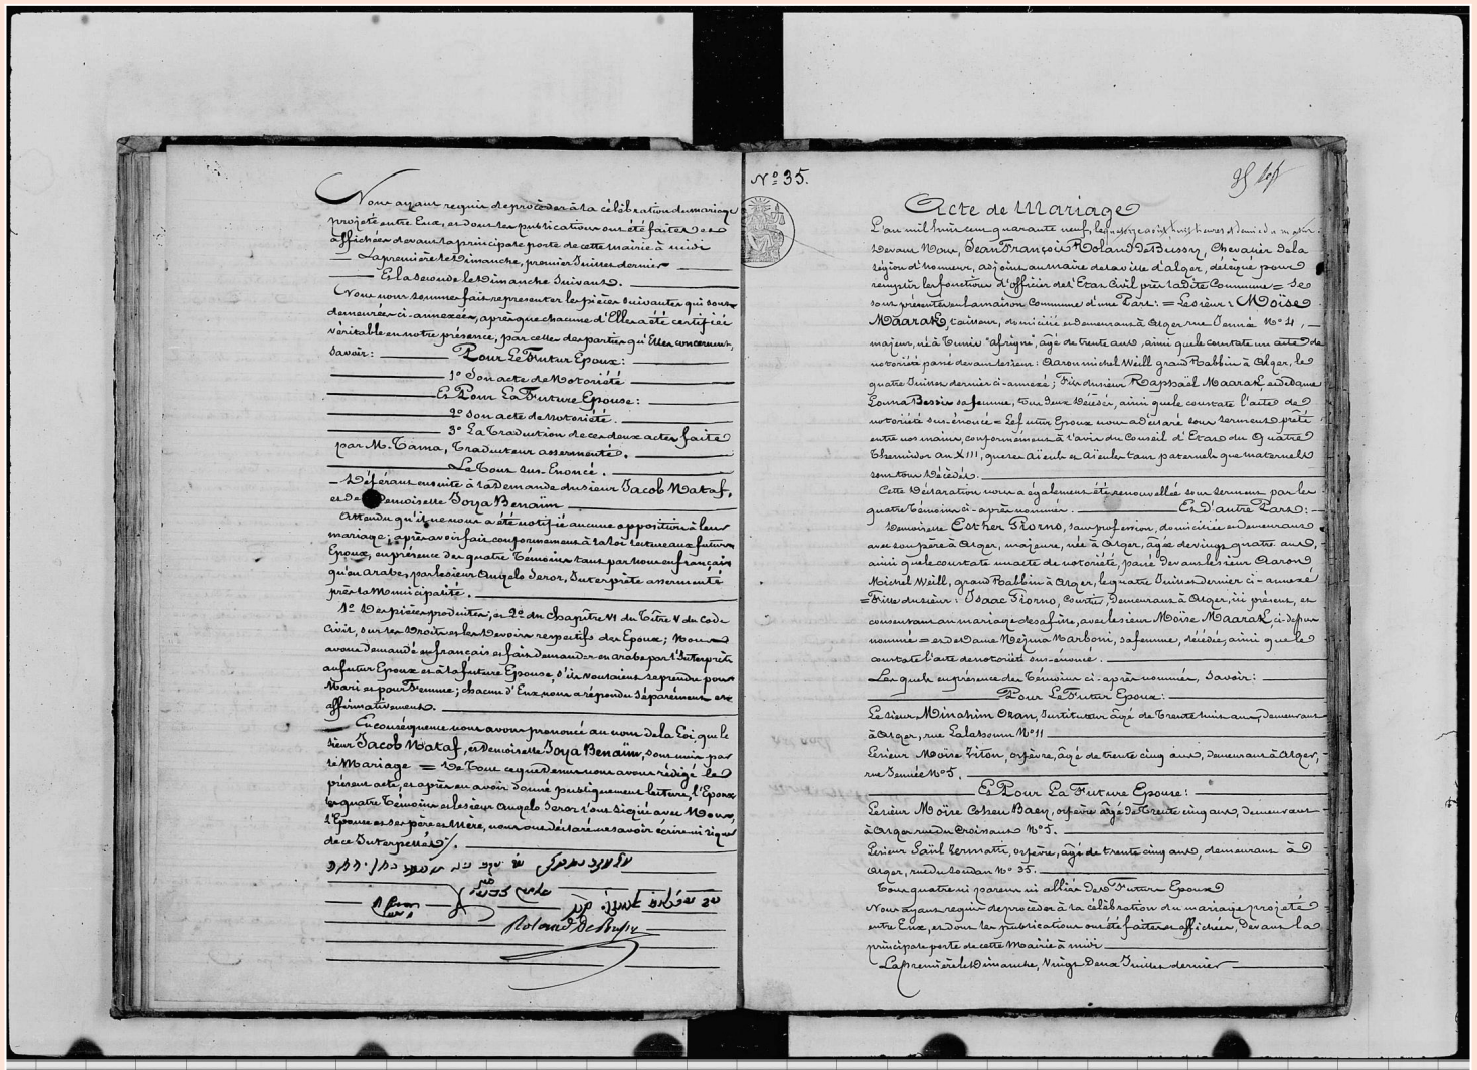 Nous ayant requis de procéder à la célébration du mariage
projeté entre Eux, et dont les publications ont été faites et
affichées devant la principale porte de cette mairie à midi
La première le Dimanche, premier Juillet dernier
Et la Seconde le Dimanche Suivant.
Nous nous sommes fait représenter les pièces suivantes qui sont
demeurées ci-annexées, après que chacune d'Elles a été certifiée
véritable en notre présence, par celle des parties qu'Elles concernent,
Savoir: Pour Le Futur Epoux:
1º Son acte de Notoriété
Et Pour La Future Epouse:
2º son acte de notoriété.
3º La Traduction de ces deux actes faite
par M. Tama, Traducteur assermenté.
Le Tout sus-Enoncé.
Déférant ensuite à la Demande du sieur Jacob Nataf,
et de Demoiselle Joya Benaïm
Attendu qu'il ne nous a été notifié aucune opposition à leur
mariage; après avoir fait conformément à la loi lecture aux futurs
Epoux, en présence des quatre Témoins tant par nous en français
qu'en arabe, par le sieur Angelo Seror, Interprète assermenté
près la Municipalité.
1º Des pièces produites; et 2º du Chapître VI du Titre V du Code
Civil, sur les Droits et les Devoirs respectifs des Epoux; Nous
avons demandé en français et fait demander en arabe par l'Interprète
au futur Epoux et à la future Epouse, s'ils voulaient se prendre pour
Mari et pour Femme; chacun d'Eux nous a répondu Séparément et
affirmativement.
En conséquence nous avons prononcé au nom de la Loi, que le
sieur Jacob Nataf, et Demoiselle Joya Benaïm, sont unis par
le Mariage = De Tout ce que Dessus nous avons rédigé le
présent acte, et après en avoir donné publiquement lecture, l'Epoux
les quatre Témoins et le sieur Angelo Seror l'ont Signé avec Nous,
L'Epouse et ses père et Mère, nous ont déclaré ne savoir écrire ni signer
de ce Interpellés/.
Roland De Bussy
Nº 35.
Acte de Mariage
L'an mil huit cent quarante neuf, le heures et demie du matin.
Devant Nous, Jean François Roland De Bussy, Chevalier de la
légion d'honneur, adjoint au maire de la ville d'alger, délégué pour
remplir les fonctions d'officier de l'Etat Civil près la Dite Commune = Se
sont présentés en la maison Commune d'une Part: = Le sieur: Moïse
Maarak, tailleur, domicilié et demeurant à Alger rue Jenné Nº 4,
majeur, né à Tunis afrique, âgé de trente ans, ainsi que le constate un acte de
notoriété passé devant le sieur: Aaron michel Weill grand Rabbin à Alger, le
quatre Juillet dernier ci-annexé; Fils du sieur Raphaël Maarak, et de Dame
Louna Bessis sa femme, tous deux Décédés, ainsi que le constate l'acte de
notoriété sus-énoncé = Le futur Epoux nous a déclaré sous serment prêté
entre nos mains, conformément à l'avis du Conseil d'Etat du Quatre
Thermidor an XIII, que ses aïeuls et aïeules tant paternels que maternels
sont tous Décédés.
Cette Déclaration nous a également été renouvellée sous serment par les
quatre Témoins ci-après nommés. Et D'autre Part:
Demoiselle Esther Fiorno, sans profession, domiciliée et demeurant
avec son père à Alger, majeure, née à Alger, âgée de vingt quatre ans,
ainsi que le constate un acte de notoriété, passé devant le sieur Aaron
Michel Weill, grand Rabbin à Alger, le quatre Juillet dernier ci-annexé
= Fille du sieur: Isaac Fiorno, Courtier, Demeurant à Alger, ici présent, et
consentant au mariage de sa fille, avec le sieur Moïse Maarak, ci-dessus
nommé = et de Dame Nejma Narboni, sa femme, décédée, ainsi que le
constate l'acte de notoriété sus-énoncé.
Lesquels en présence des Témoins ci-après nommés, Savoir:
Pour Le Futur Epoux:
Le sieur Minahim Ozan, Instituteur âgé de Trente huit ans, demeurant
à Alger, rue Lalahoum Nº 11
Le sieur Moïse Fiton, orfèvre, âgé de trente cinq ans, demeurant à Alger,
rue Jennée Nº 5.
Et Pour La Future Epouse:
Le sieur Moïse Cohen Bacri, orfèvre âgé de Trente cinq ans, demeurant
à Alger rue du Croissant Nº 5.
Le sieur Saül Zermatti, orfèvre, âgé de trente cinq ans, demeurant à
Alger, rue du Soudan Nº 35.
Tous quatre ni parens ni alliés des Futurs Epoux
Nous ayant requis de procéder à la célébration du mariage projeté
entre Eux, et dont les publications ont été faites et affichées, Devant la
principale porte de cette Mairie à midi
La première le Dimanche, Vingt Deux Juillet dernier